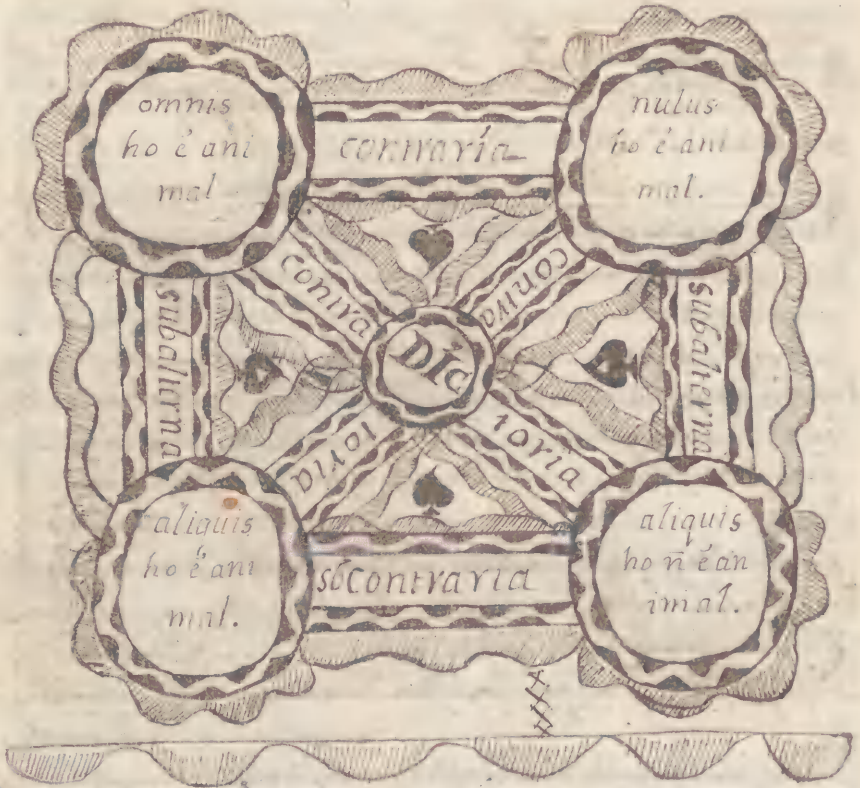 omnis
ho ē ani
mal
contraria
nulus
ho ē ani
mal.
contra
contra
subalterna
DIC
subalterna
toria
toria
aliquis
ho ē ani
mal.
sƀContraria
aliquis
ho n̄ ē an
imal.